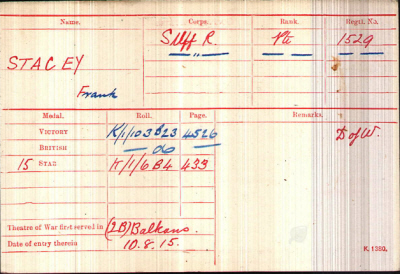 Name. Corps. Rank. Regtl. No.
STACEY Suff R. Pte 1529
Frank — " —
Medal. Roll. Page. Remarks.
VICTORY K/1/103B23 4526 D of W.
BRITISH — do —
15 STAR K/1/6B4 433
Theatre of War first served in (2B) Balkans.
Date of entry therein 10.8.15.
K. 1380.